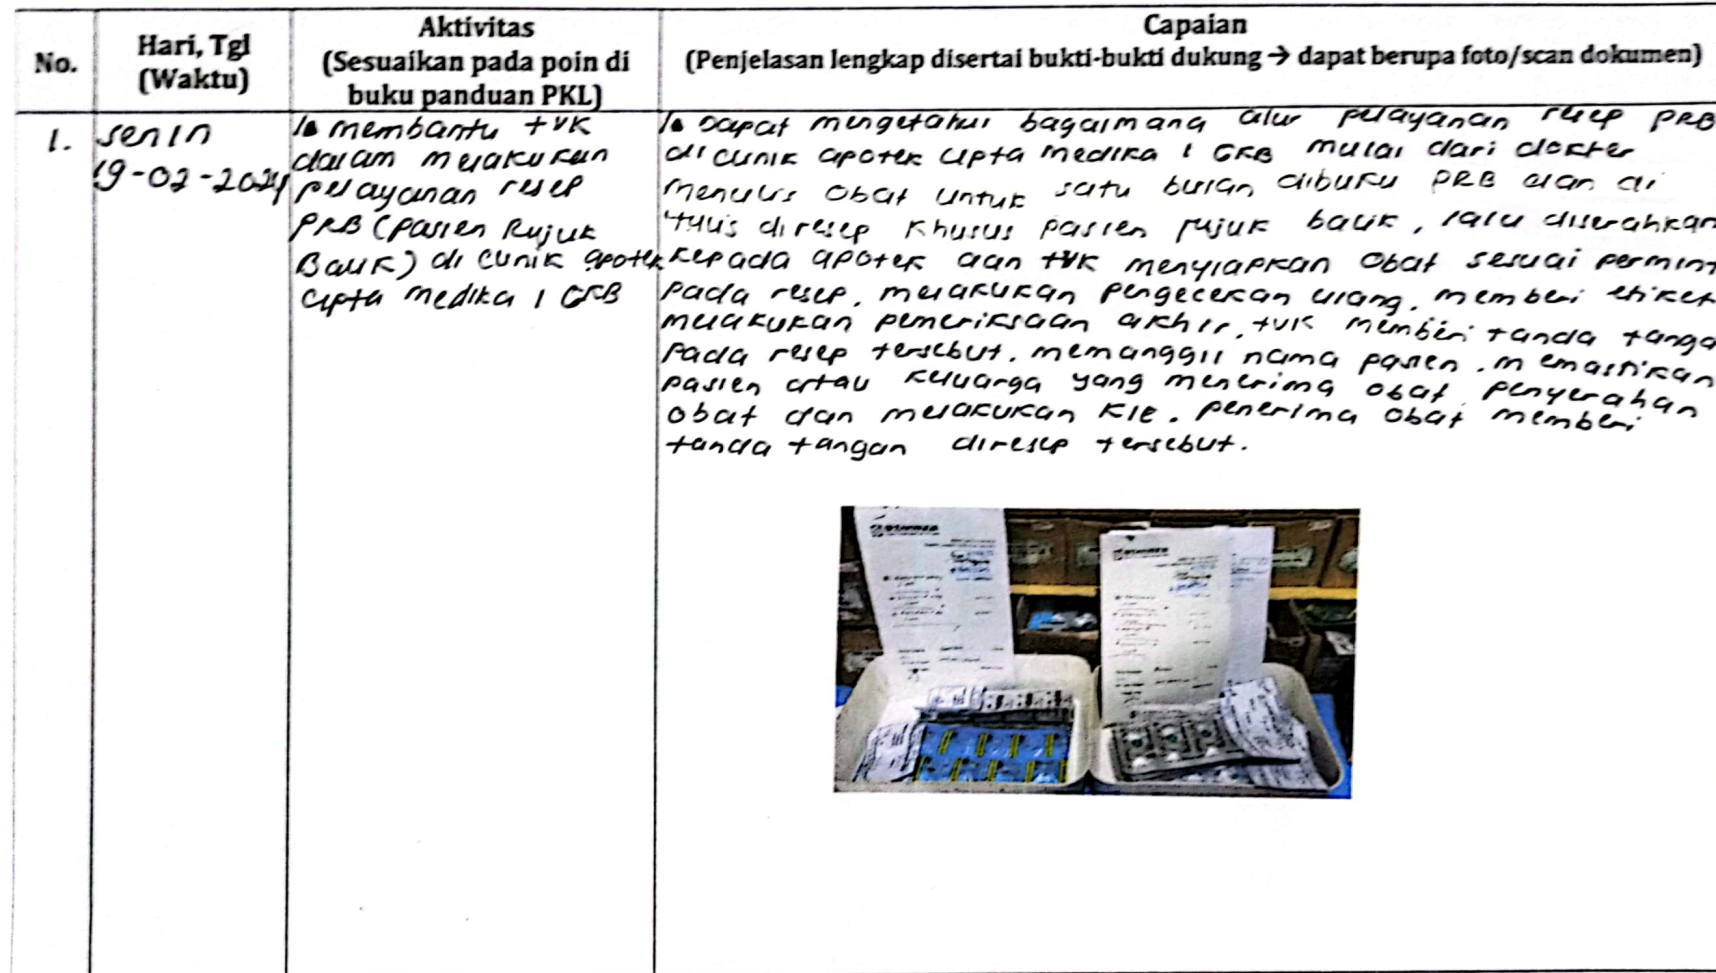 No.
Hari, Tgl
(Waktu)
Aktivitas
(Sesuaikan pada poin di
buku panduan PKL)
Capaian
(Penjelasan lengkap disertai bukti-bukti dukung → dapat berupa foto/scan dokumen)
1.
senin
19-02-2024
1. membantu TVK
dalam melakukan
pelayanan resep
PRB (pasien Rujuk
Balik) di clinik apotek
cipta medika 1 GKB
1. Dapat mengetahui bagaimana alur pelayanan resep PRB
di clinik apotek cipta medika 1 GKB mulai dari dokter
menulis obat untuk satu bulan dibuku PRB dan di
tulis diresep khusus pasien rujuk balik, lalu diserahkan
kepada apotek dan TVK menyiapkan obat sesuai permint
pada resep, melakukan pengecekan ulang, memberi etiket
melakukan pemeriksaan akhir, TVK memberi tanda tanga
pada resep tersebut. memanggil nama pasien. memastikan
pasien atau keluarga yang menerima obat. penyerahan
obat dan melakukan KIE. penerima obat memberi
tanda tangan diresep tersebut.